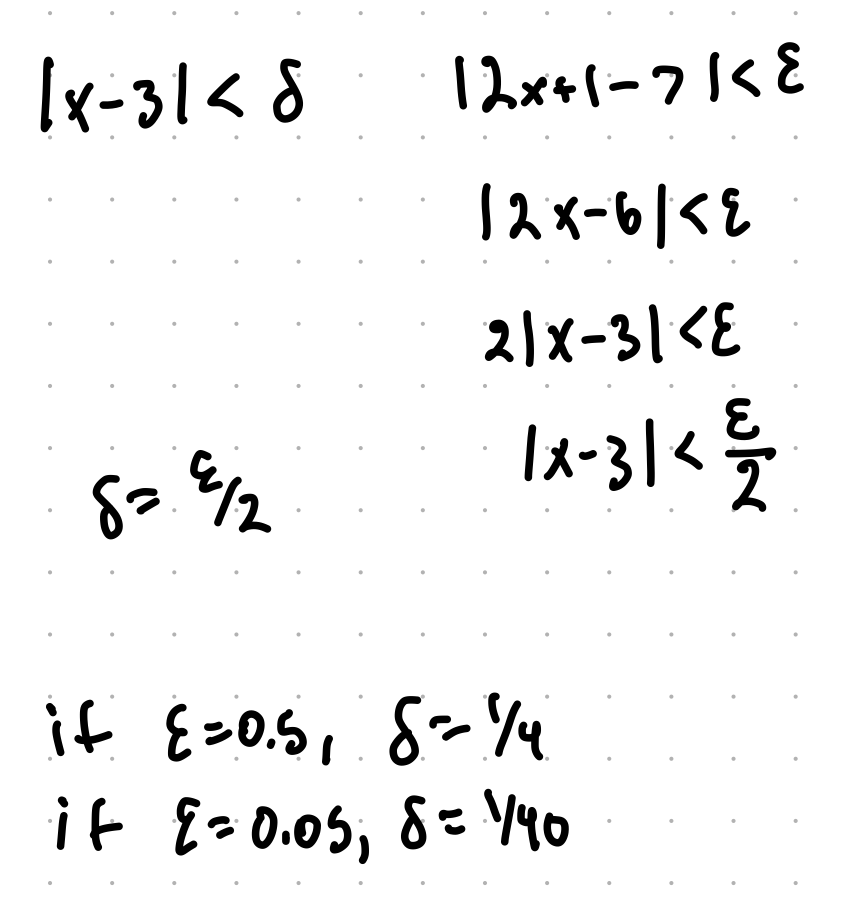 |x-3| < δ |2x+1-7| < ε
|2x-6| < ε
2|x-3| < ε
|x-3| < ε/2
δ = ε/2
if ε=0.5, δ=1/4
if ε=0.05, δ=1/40